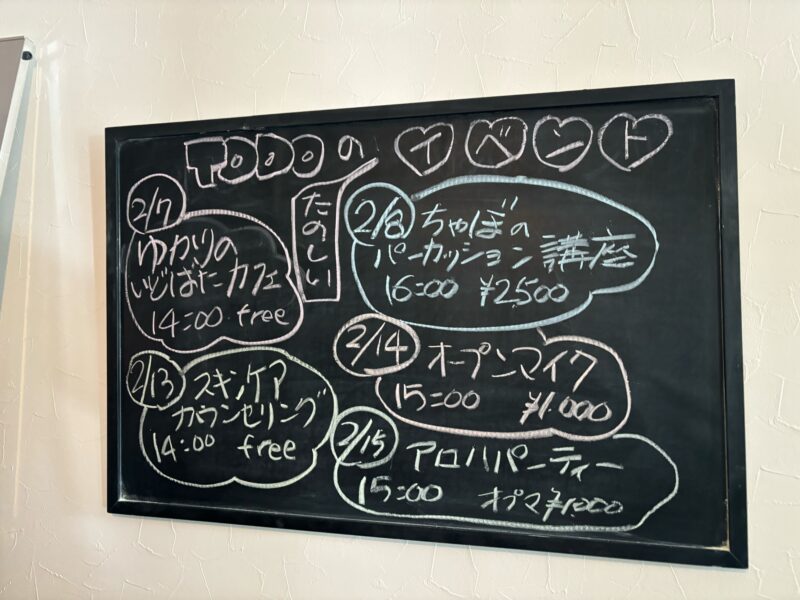 TODOの たのしい イベント
2/7
ゆかりの
いどばたカフェ
14:00 free
2/8 ちゃぼの
パーカッション講座
16:00 ¥2500
2/13 スキンケア
カウンセリング
14:00 free
2/14 オープンマイク
15:00 ¥1.000
2/15 アロハパーティー
15:00 オプマ¥1.000